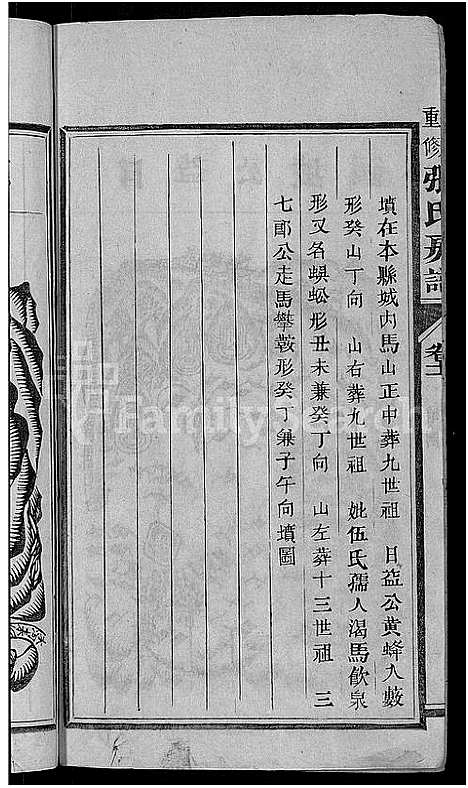 重修張氏房譜
墳在本縣城內馬山正中葬九世祖 日益公黃蜂入藪
形癸山丁向 山右葬九世祖 妣伍氏孺人渴馬飲泉
形又名蜈蚣形丑未兼癸丁向 山左葬十三世祖 三
七郎公走馬攀鞍形癸丁兼子午向墳圖
FamilySearch